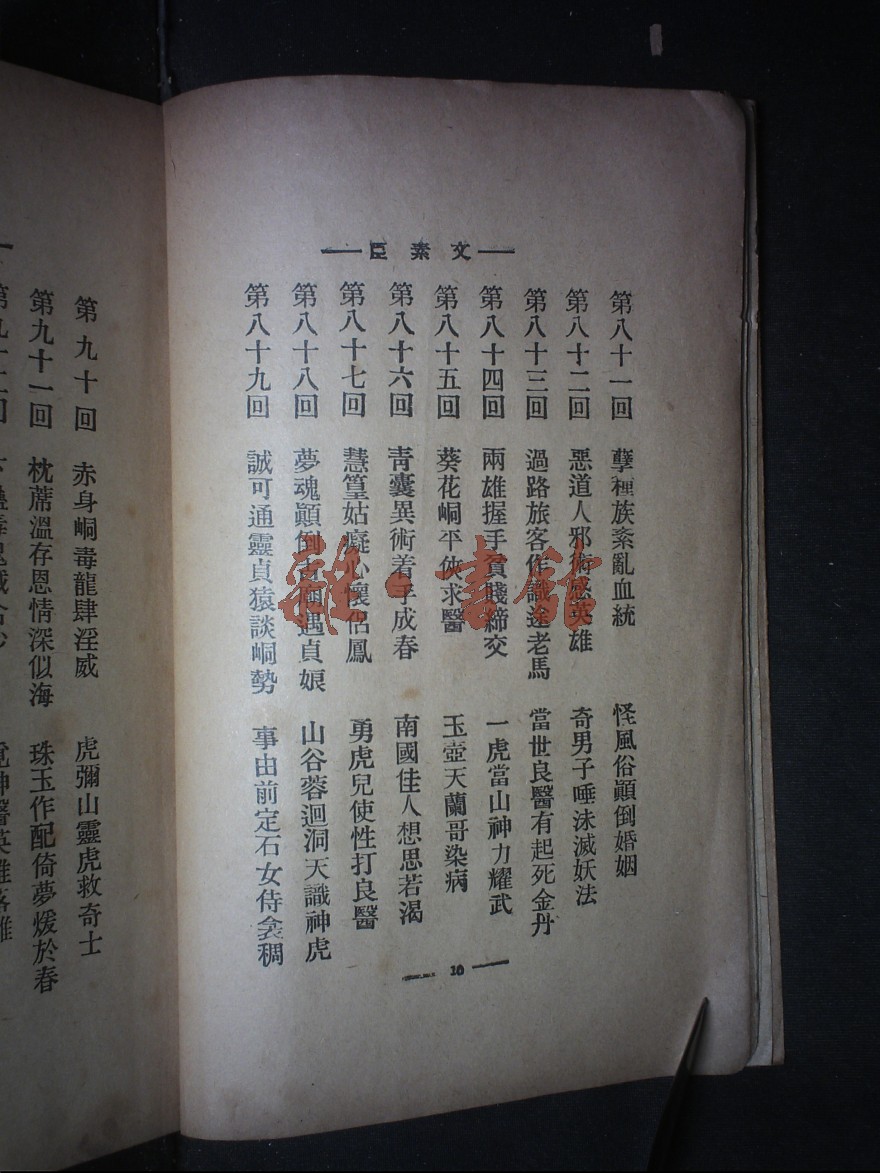 文素臣
第八十一回 孽種族紊亂血統 怪風俗顚倒婚姻
第八十二回 惡道人邪術惑英雄 奇男子唾沫滅妖法
第八十三回 過路旅客作識途老馬 當世良醫有起死金丹
第八十四回 兩雄握手貧賤締交 一虎當山神力耀武
第八十五回 葵花峒平俠求醫 玉壺天蘭哥染病
第八十六回 靑囊異術着手成春 南國佳人想思若渴
第八十七回 慧篁姑癡心懷侶鳳 勇虎兒使性打良醫
第八十八回 夢魂顚倒古 遇貞娘 山谷蓉迴洞天識神虎
第八十九回 誠可通靈貞猿談峒勢 事由前定石女侍衾稠
10
第九十回 赤身峒毒龍肆淫威 虎彌山靈虎救奇士
第九十一回 枕蓆溫存恩情深似海 珠玉作配倚夢煖於春
雜·書館